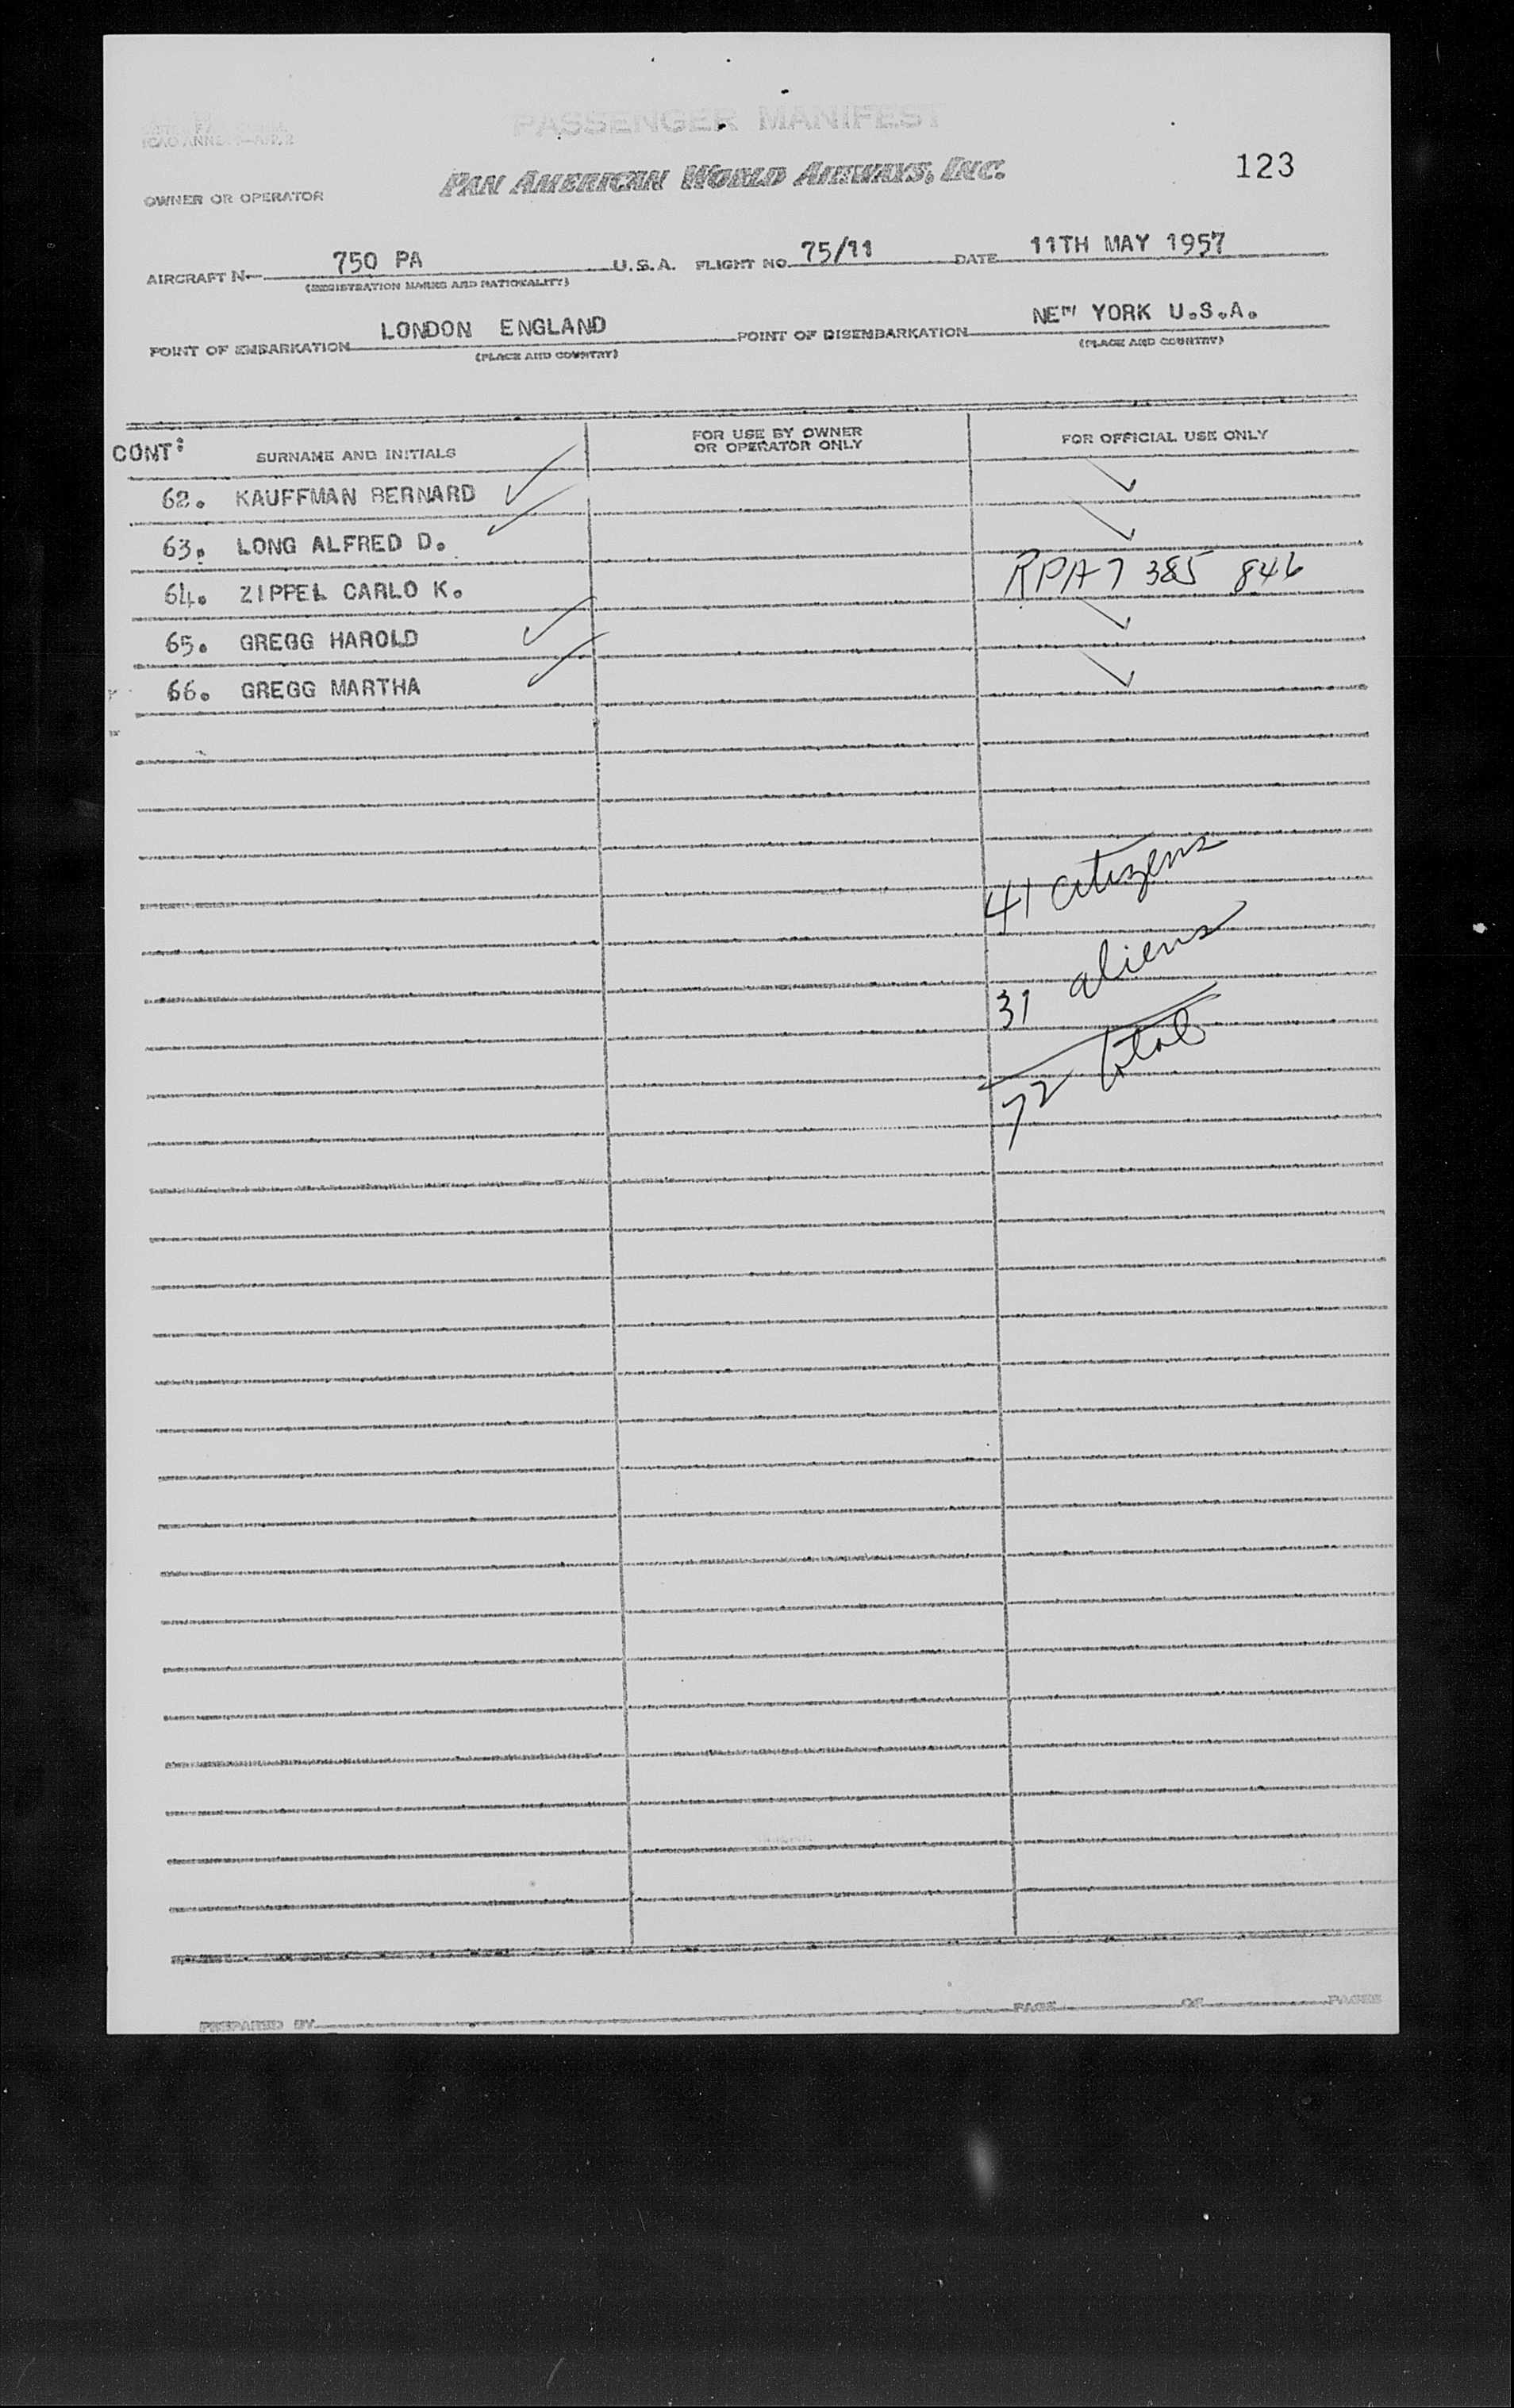 PASSENGER MANIFEST
PAN AMERICAN WORLD AIRWAYS, INC.
123
OWNER OR OPERATOR
AIRCRAFT N 750 PA U.S.A. FLIGHT NO. 75/11 DATE 11TH MAY 1957
(REGISTRATION MARKS AND NATIONALITY)
POINT OF EMBARKATION LONDON ENGLAND POINT OF DISEMBARKATION NEW YORK U.S.A.
(PLACE AND COUNTRY) (PLACE AND COUNTRY)
CONT: SURNAME AND INITIALS FOR USE BY OWNER OR OPERATOR ONLY FOR OFFICIAL USE ONLY
62. KAUFFMAN BERNARD ✓ ✓
63. LONG ALFRED D. ✓ ✓
64. ZIPPEL CARLO K. RPA7 385 846
65. GREGG HAROLD ✓ ✓
66. GREGG MARTHA ✓ ✓
41 citizens
31 aliens
72 total
PREPARED BY PAGE OF PAGES